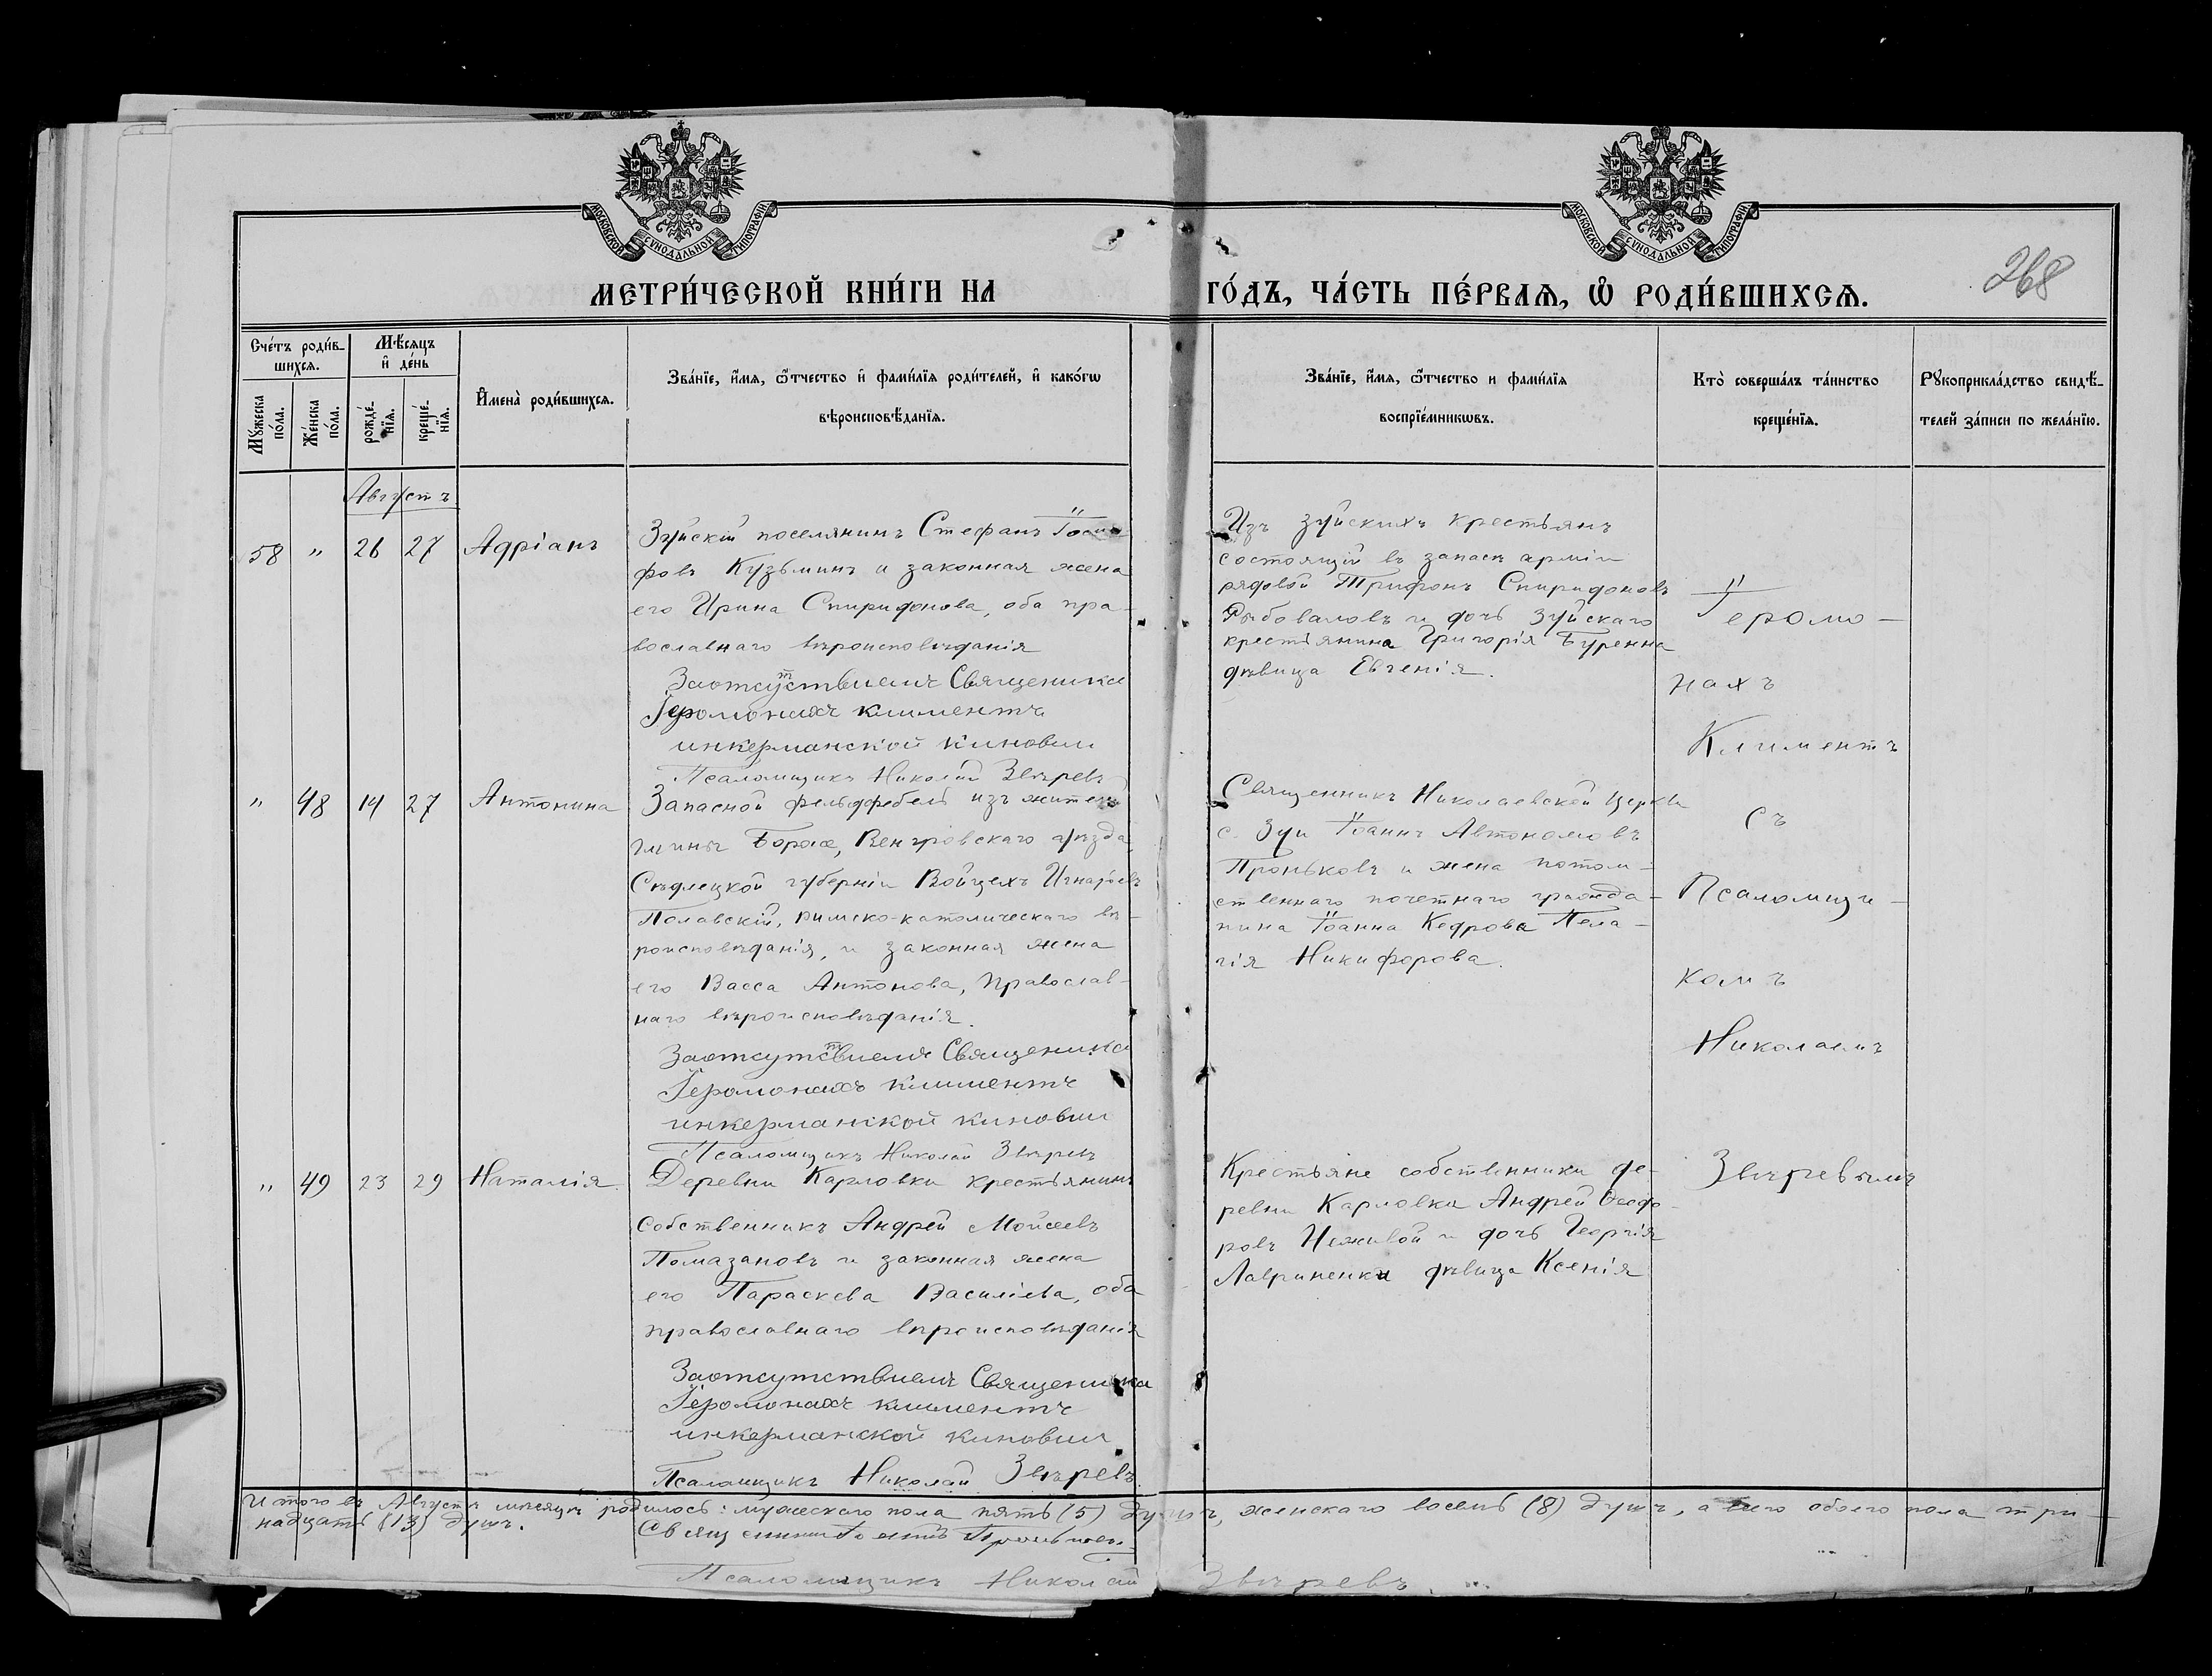 МОСКОВСКОЙ СѴНОДАЛЬНОЙ ТИПОГРАФІИ
МОСКОВСКОЙ СѴНОДАЛЬНОЙ ТИПОГРАФІИ
МЕТРИ́ЧЕСКОЙ КНИ́ГИ НА ГО́ДЪ, ЧА́СТЬ ПЕ́РВАѦ, Ѽ РОДИ́ВШИХСѦ.
268
Сче́тъ роди́в-
шихсѧ.
Мѣ́сѧцъ
и҆ де́нь
Мꙋ́жеска по́ла.
Же́нска по́ла.
рожде́-
нїѧ.
креще́-
нїѧ.
И҆мена̀ роди́вшихсѧ.
Зва́нїе, и҆́мѧ, ѻ҆́тчество и҆ фами́лїѧ роди́телей, и҆ како́гѡ
вѣроисповѣ́данїѧ.
Зва́нїе, и҆́мѧ, ѻ҆́тчество и фами́лїѧ
воспрїе́мникѡвъ.
Кто̀ соверша́лъ та́инство
креще́нїѧ.
Рꙋкоприкла́дство свидѣ́-
телей за́писи по жела́нїю.
Августъ
58 " 26 27 Адріанъ
Зуйскій поселянинъ Стефанъ Іоси-
фовъ Кузьминъ и законная жена
его Ирина Спиридонова, оба пра-
вославнаго вѣроисповѣданія
Заотсутствиемъ Священика
Іеромонахъ климентъ
инкерманской киновии
Псаломщикъ Николай Звѣревъ
Изъ зуйскихъ крестьянъ
состоящій въ запасѣ арміи
рядовой Трифонъ Спиридоновъ
Рыбоваловъ и дочь Зуйскаго
крестьянина Григорія Буренка
дѣвица Евгенія.
" 48 14 27 Антонина
Запасной фельдфебель изъ жителей
гмины Борже, Венгровскаго уѣзда,
Сѣдлецкой губерніи Войцехъ Игнатьевъ
Полавскій, римско-католическаго вѣ-
роисповѣданія, и законная жена
его Васса Антонова, православ-
наго вѣроисповѣданія.
Заотсутствиемъ Священика
Іеромонахъ климентъ
инкерманской киновии
Псаломщикъ Николай Звѣревъ
Священникъ Николаевской церкви
с. Зуи Іоаннъ Автономовъ
Проньковъ и жена потом-
ственнаго почетнаго гражда-
нина Іоанна Кедрова Пела-
гія Никифорова.
" 49 23 29 Наталія
Деревни Карловки крестьянинъ
собственникъ Андрей Моисеевъ
Помазановъ и законная жена
его Параскева Василіева, оба
православнаго вѣроисповѣданія
Заотсутствиемъ Священика
Іеромонахъ климентъ
инкерманской киновии
Псаломщикъ Николай Звѣревъ
Крестьяне собственники де-
ревни Карловки Андрей Ѳеодо-
ровъ Неживой и дочь Георгія
Лавриненки дѣвица Ксенія
Іеромо-
нахъ
Климентъ
съ
Псаломщи-
комъ
Николаемъ
Звѣревымъ
Итого въ Августѣ мѣсяцѣ родилось: мужескаго пола пять (5) душъ, женскаго восемь (8) душъ, а всего обоего пола три-
надцать (13) душъ.
Священникъ Проньковъ
Псаломщикъ Николай Звѣревъ.